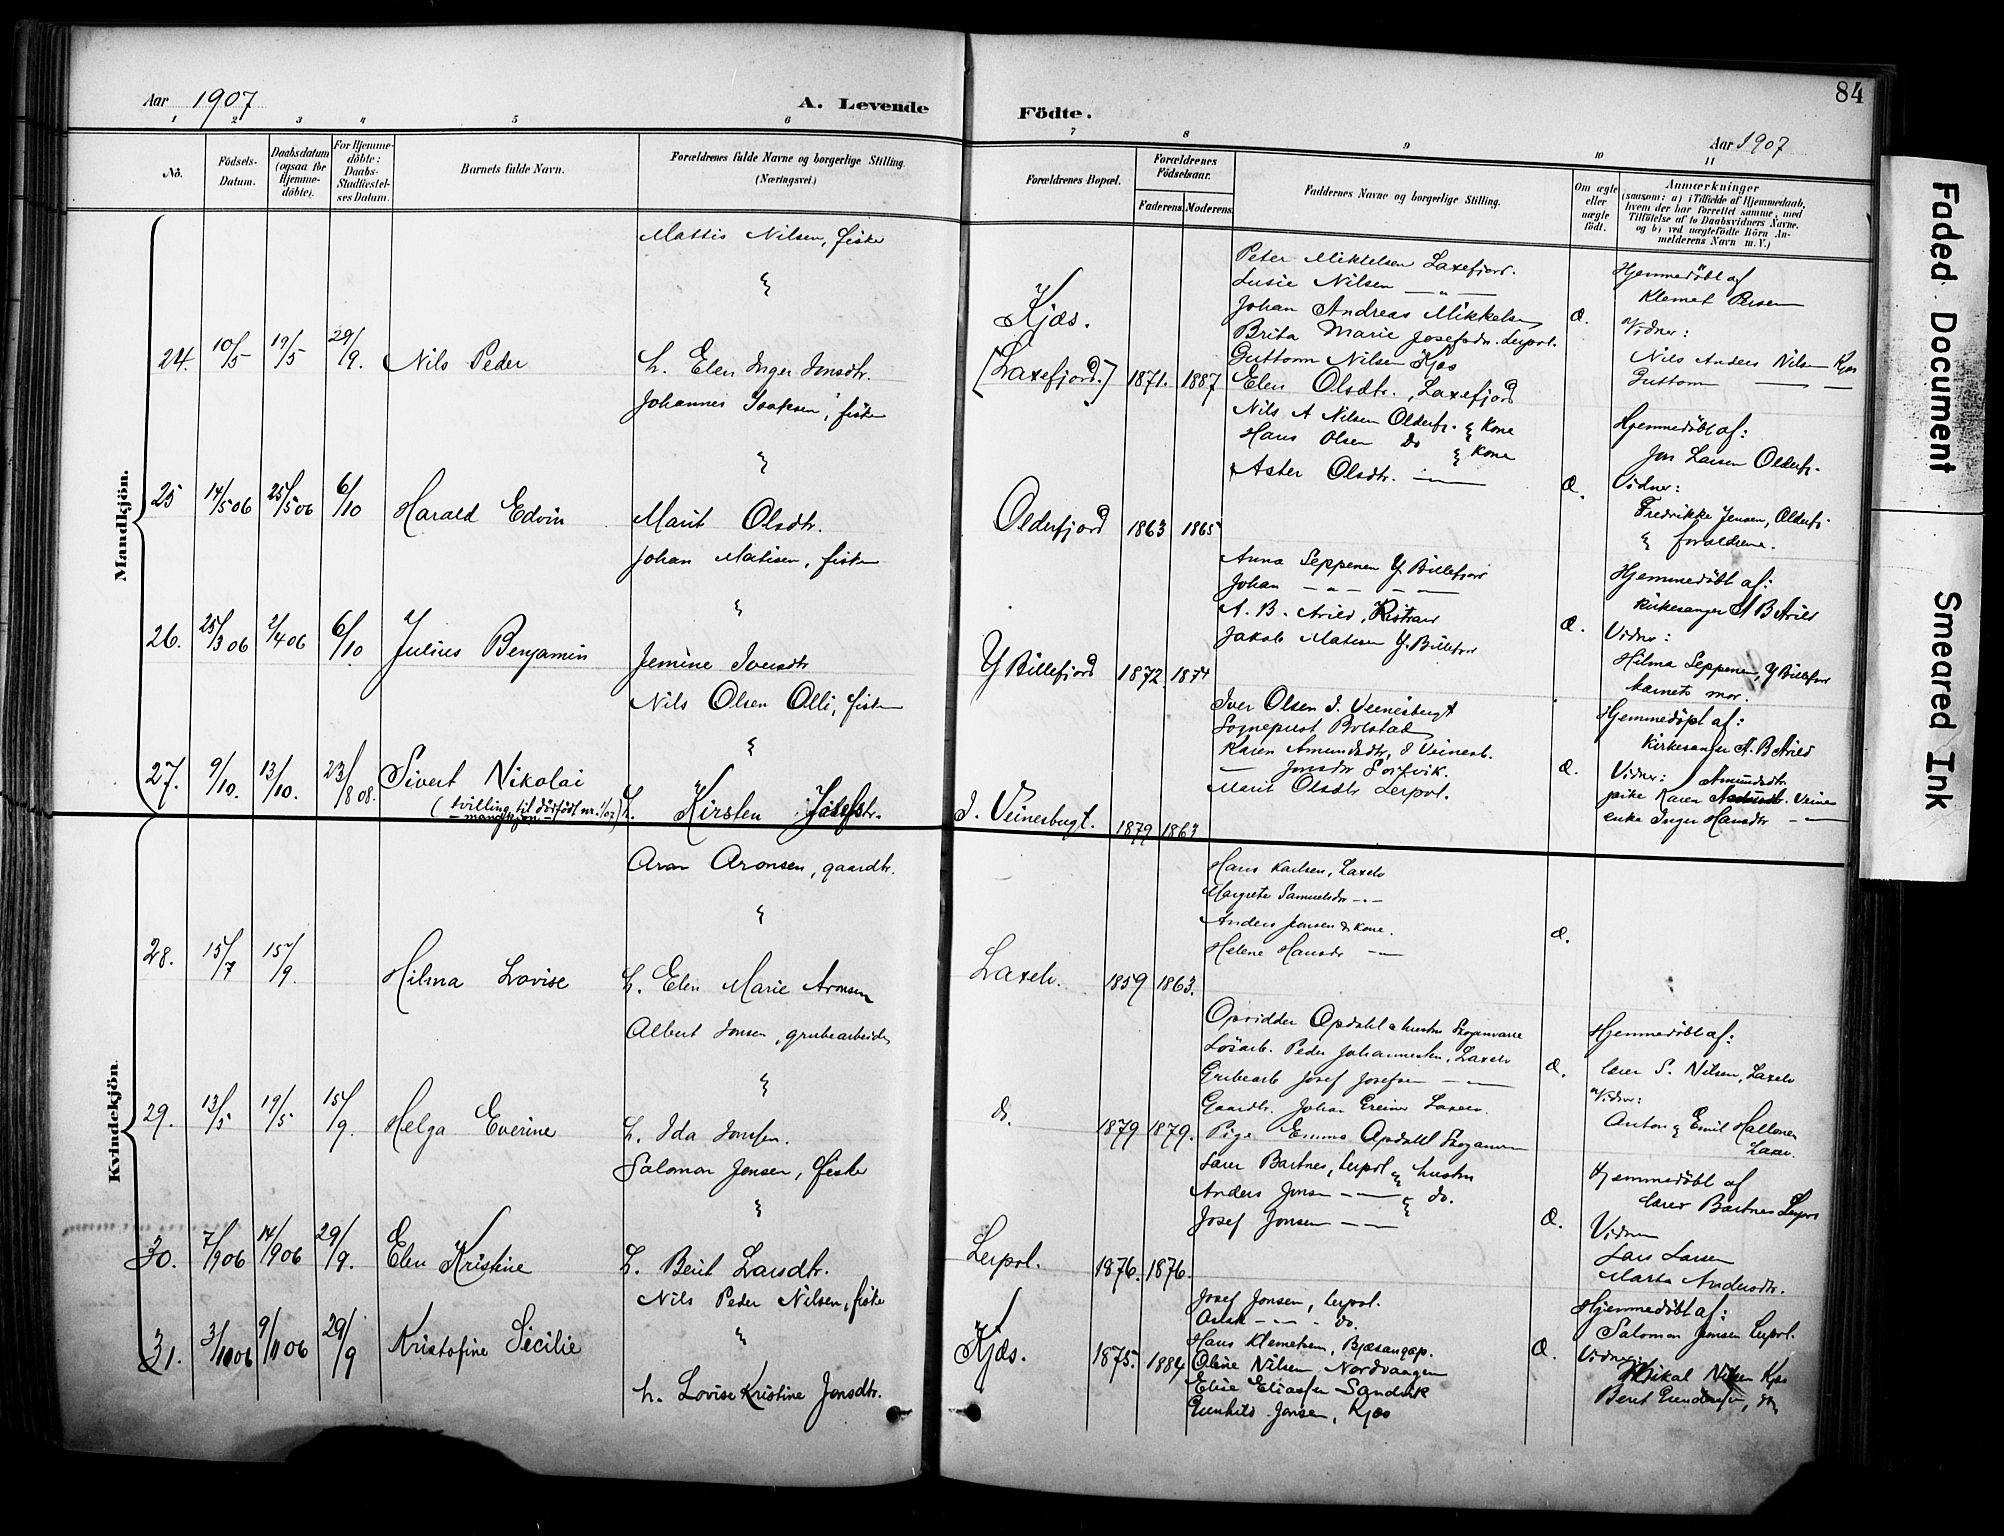 Aar 1907
A. Levende
Födte.
84
Aar 1907
1 2 3 4 5 6 7 8 9 10 11
No.
Födsels-Datum.
Daabsdatum (ogsaa for Hjemme-döbte).
For Hjemme-döbte: Daabs-Stadfæstel-ses Datum.
Barnets fulde Navn.
Forældrenes fulde Navne og borgerlige Stilling.
(Næringsvei.)
Forældrenes Bopæl.
Forældrenes Födselsaar.
Faderens. Moderens.
Faddernes Navne og borgerlige Stilling.
Om ægte eller uægte födt.
Anmærkninger
(saasom: a) i Tilfælde af Hjemmedaab,
hvem der har forrettet samme, med
Tilföielse af to Daabsvidners Navne,
og b) ved uægtefödte Börn An-
melderens Navn m. V.)
Mandkjön.
24. 10/5 19/5 29/9. Nils Peder
Mattis Nilsen, fisker
&
h. Elen Inger Jonsdtr.
Kjæs.
[Laxefjord.] 1871. 1887
Peter Mikkelsen Laxefjord.
Susie Nilsen — " —
Johan Andreas Mikkelsen
Brita Marie Josefsdr. Lerpol.
Guttorm Nilsen Kjæs
Elen Olsdtr., Laxefjord
Æ.
Hjemmedöbt af
Klemet Persen
Vidner:
Nils Anders Nilsen Kjæs
Guttorm — —
25 14/5 06 25/5 06 6/10 Harald Edvin
Johannes Isaksen, fisker
&
Marit Olsdtr.
Olderfjord 1863 1865
Nils A Nilsen Olderfj. & Kone
Hans Olsen do & Kone
Aster Olsdtr. —
Æ.
Hjemmedöbt af:
Jon Larsen Olderfj.
Vidner:
Fredrikke Jensen, Olderfj.
& forældrene.
26. 25/3 06 2/4 06 6/10 Julius Benjamin
Johan Matisen, fisker
&
Jemine Iversdtr
Y Billefjord 1872. 1874
Anna Seppenen Y. Billefjord
Johan — " — " —
A. B. Arild, Kistrand
Jakob Matisen Y. Billefjor
Æ.
Hjemmedöbt af:
Kirkesanger A B Arild
Vidner:
Hilma Seppenen, Y Billefjor
barnets mor.
27. 9/10. 13/10. 23/8 08. Sivert Nikolai
(tvilling til dödfödt nr. 1/07)
mandkjön
Nils Olsen Olli, fisker
&
h. Kirsten Josefsdtr.
I. Veinesbugt. 1879 1863
Iver Olsen I. Veinesbugt
Sogneprest Bolstad
Karen Amundsdtr, I Veinesb.
— Jonsdtr
Marit Olsdtr Lerpol.
Æ.
Hjemmedöpt af:
Kirkesanger A. B Arild
Vidner: Amundsdtr
pike Karen Veines
enke Inger Hansdtr — " —
Kvindekjön.
28. 15/7 15/9. Hilma Lovise
Aron Aronsen, gaardbr.
&
h. Elen Marie Aronsen
Laxelv. 1859 1863.
Hans Karlsen, Laxelv
Margrete Samuelsdtr — " —
Anders Jensen & kone.
Helene Hansdtr —
Æ.
29. 13/5 19/5 15/9. Helga Everine
Albert Jonsen, grubearbeider
&
h. Ida Jonsen.
do. 1879 1879.
Opsidder Opdahl & hustru Skoganvarre
Lösarb. Peder Johannesen, Laxelv
Grubearb Josef Josefsen — —
Gaardbr. Johan Greiner Laxelv.
Pige Emma Opdahl Skoganvar
Æ.
Hjemmedöbt af:
lærer S. Nilsen, Laxelv
Vidner:
Anton & Emil Hallonen
Laxelv.
30. 7/9 06 14/9 06 29/9. Elen Kristine
Salomon Jensen, fisker
&
h. Berit Larsdtr.
Lerpol. 1876. 1876.
Lærer Bartnes, Lerpol & hustru
Anders Jonsen — & do.
Josef Jonsen — —
Æ.
Hjemmedöbt af
lærer Bartnes Lerpol
Vidner
Lars Larsen
Marta Andersdtr.
31. 3/10 06 9/11 06 29/9 Kristofine Secilie
Nils Peder Nilsen, fisker
"
h. Lovise Kristine Jonsdtr.
Kjæs. 1875. 1884
Josef Jonsen, Lerpol.
Aslak — " — do.
Hans Klemetsen, Bjæsangap.
Oline Nilsen Nordvaagen
Elise Eliassen Sandvik
Gunhild Jonsen, Kjæs
Æ.
Hjemmedöbt af:
Salomon Jensen Lerpol.
Vidner:
Mikal Nilsen Kjæs
Beret Gundersen, do
Faded Document
Smeared Ink